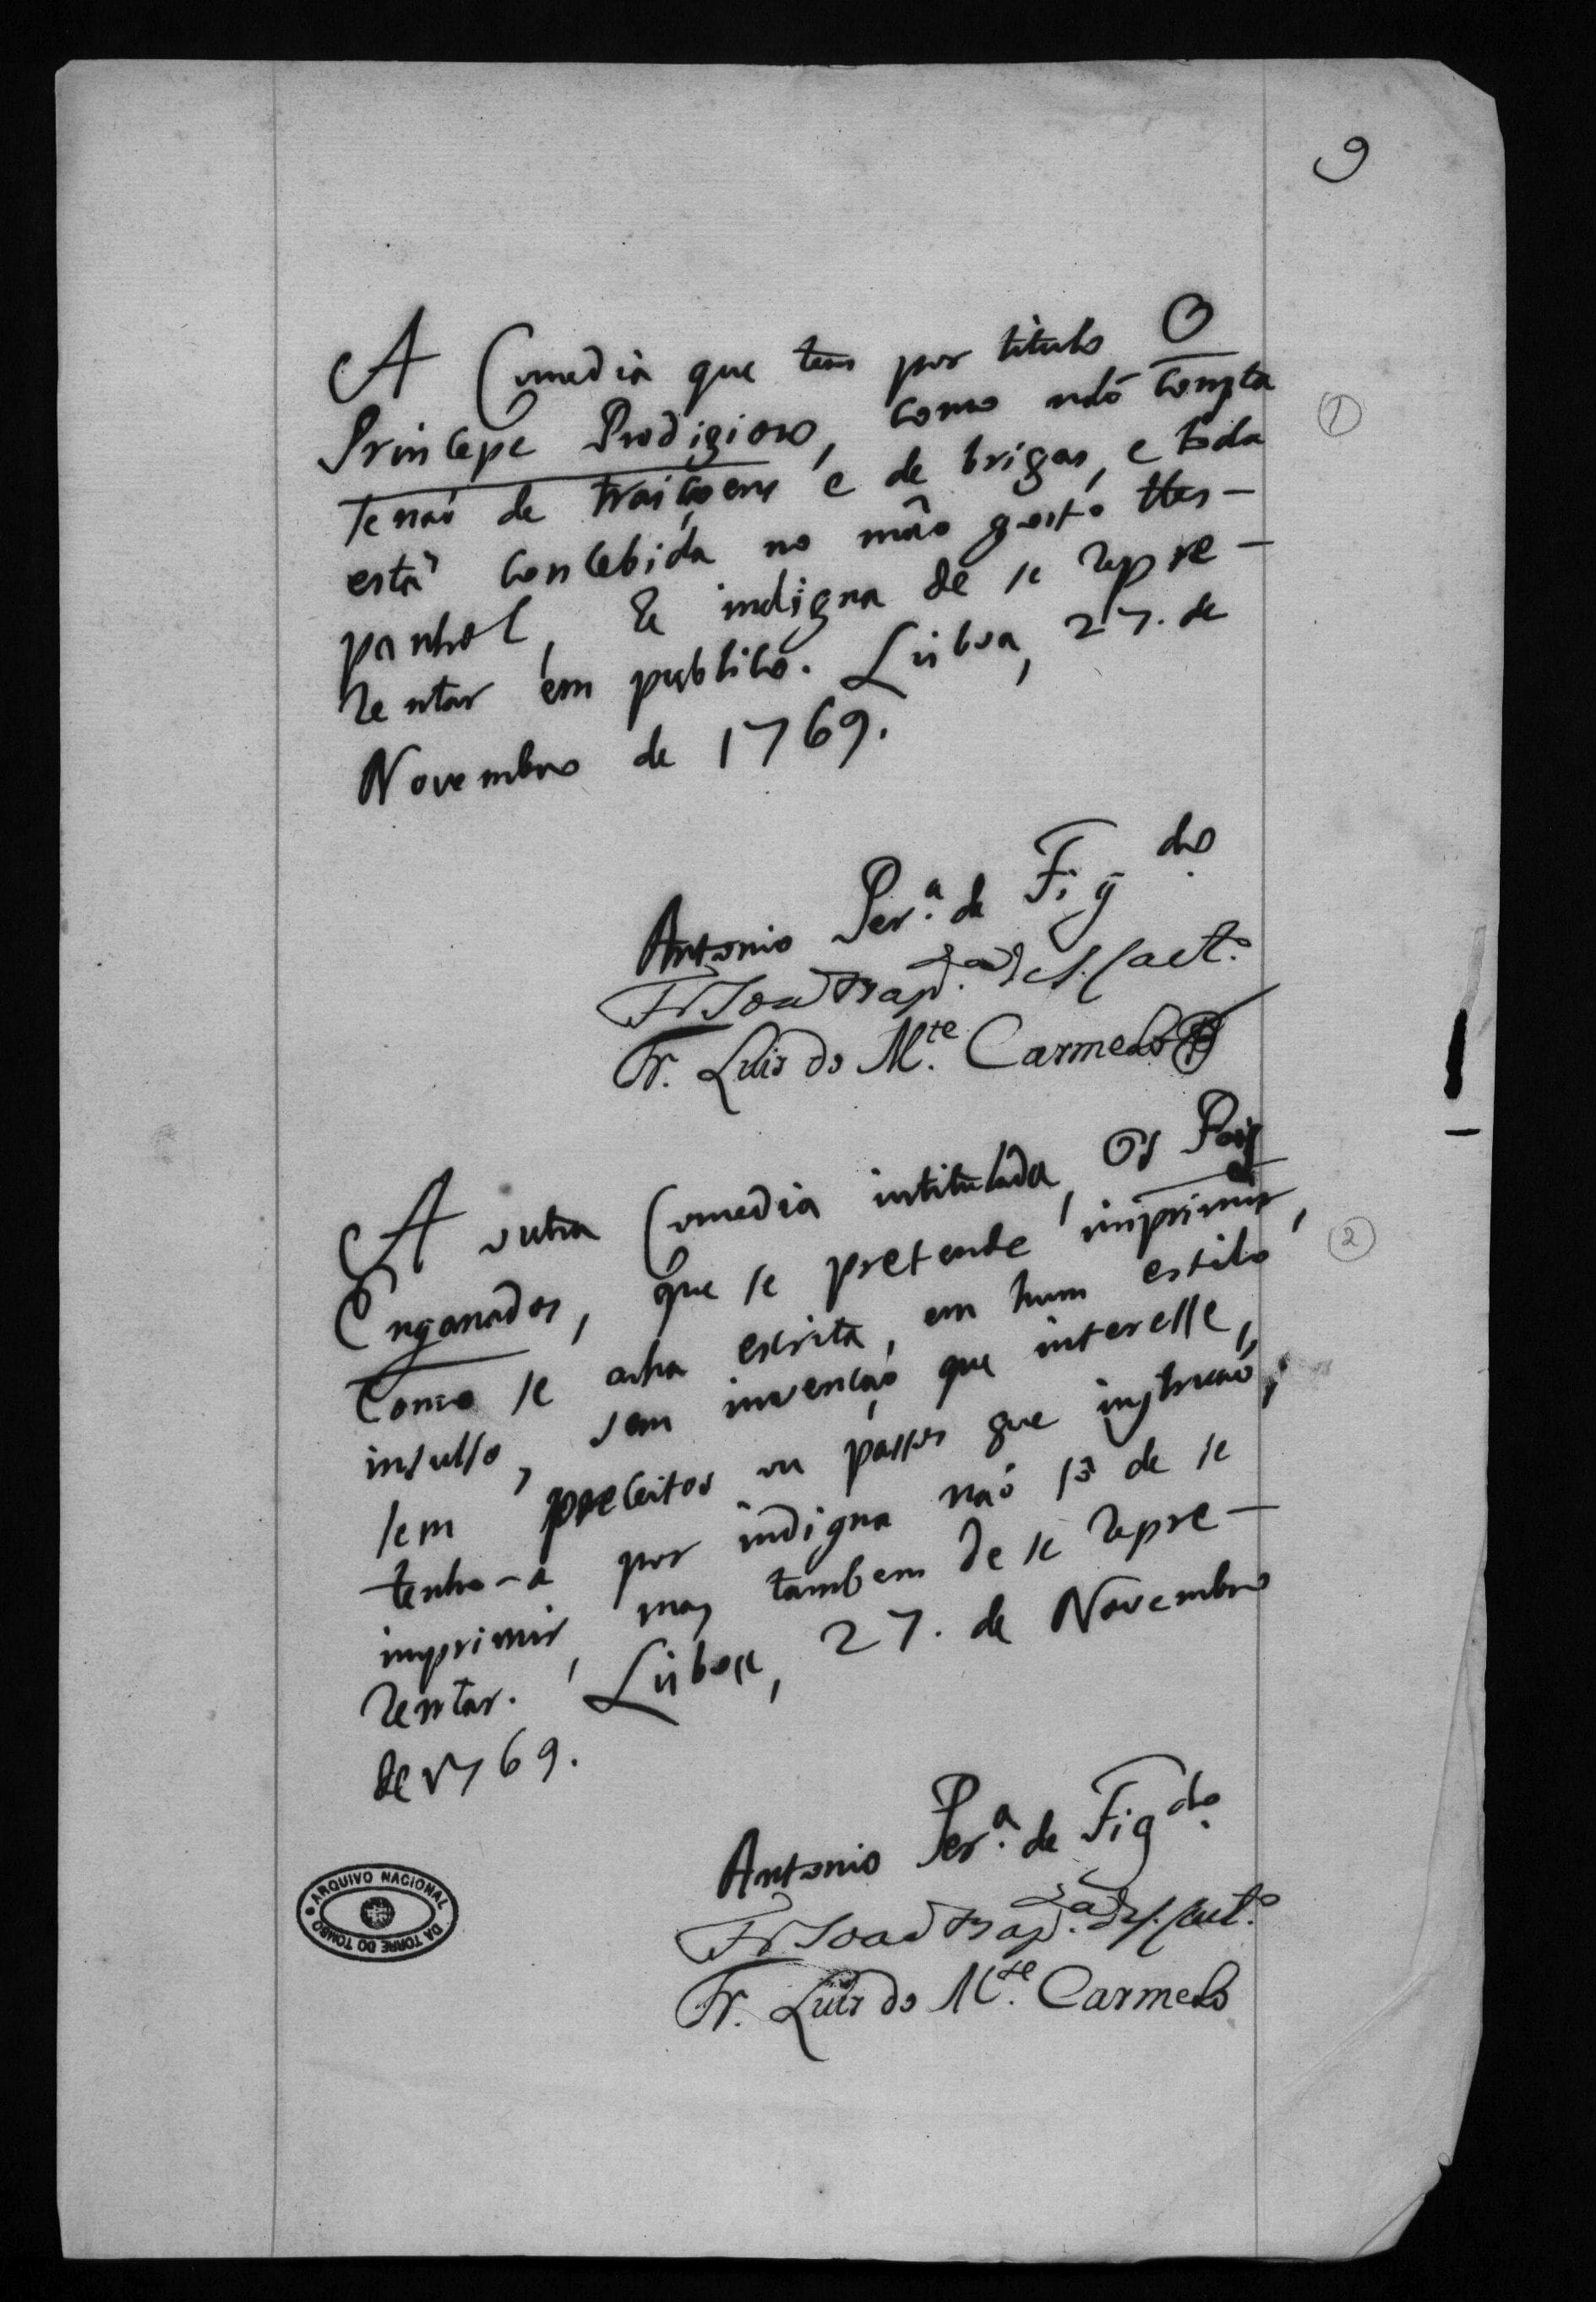 9
A Comedia que tem por titulo O
Princepe Prodigioso, como naõ consta
senaõ de traiçoens e de brigas, e toda
está concebida no máo gosto Hes-
panhol, he indigna de se repre-
zentar em publico. Lisboa, 27. de
Novembro de 1769.
1
Antonio Per.ª de Fig.do
Fr. Joaõ Bap.ta de S. Caet.º
Fr. Luis do M.te Carmelo
A outra Comedia intitulada, Os Pays
Enganados, que se pretende imprimir,
2
como se acha escrita, em hum estilo
insulso, sem invençaõ que interesse,
sem preceitos ou passos que instruaõ;
tenho-a por indigna naõ só de se
imprimir, mas tambem de se repre-
zentar. Lisboa, 27. de Novembro
de 1769.
Antonio Per.ª de Fig.do
Fr. Joaõ Bap.ta de S. Caet.º
Fr. Luis do M.te Carmelo
ARQUIVO NACIONAL
DA TORRE DO TOMBO